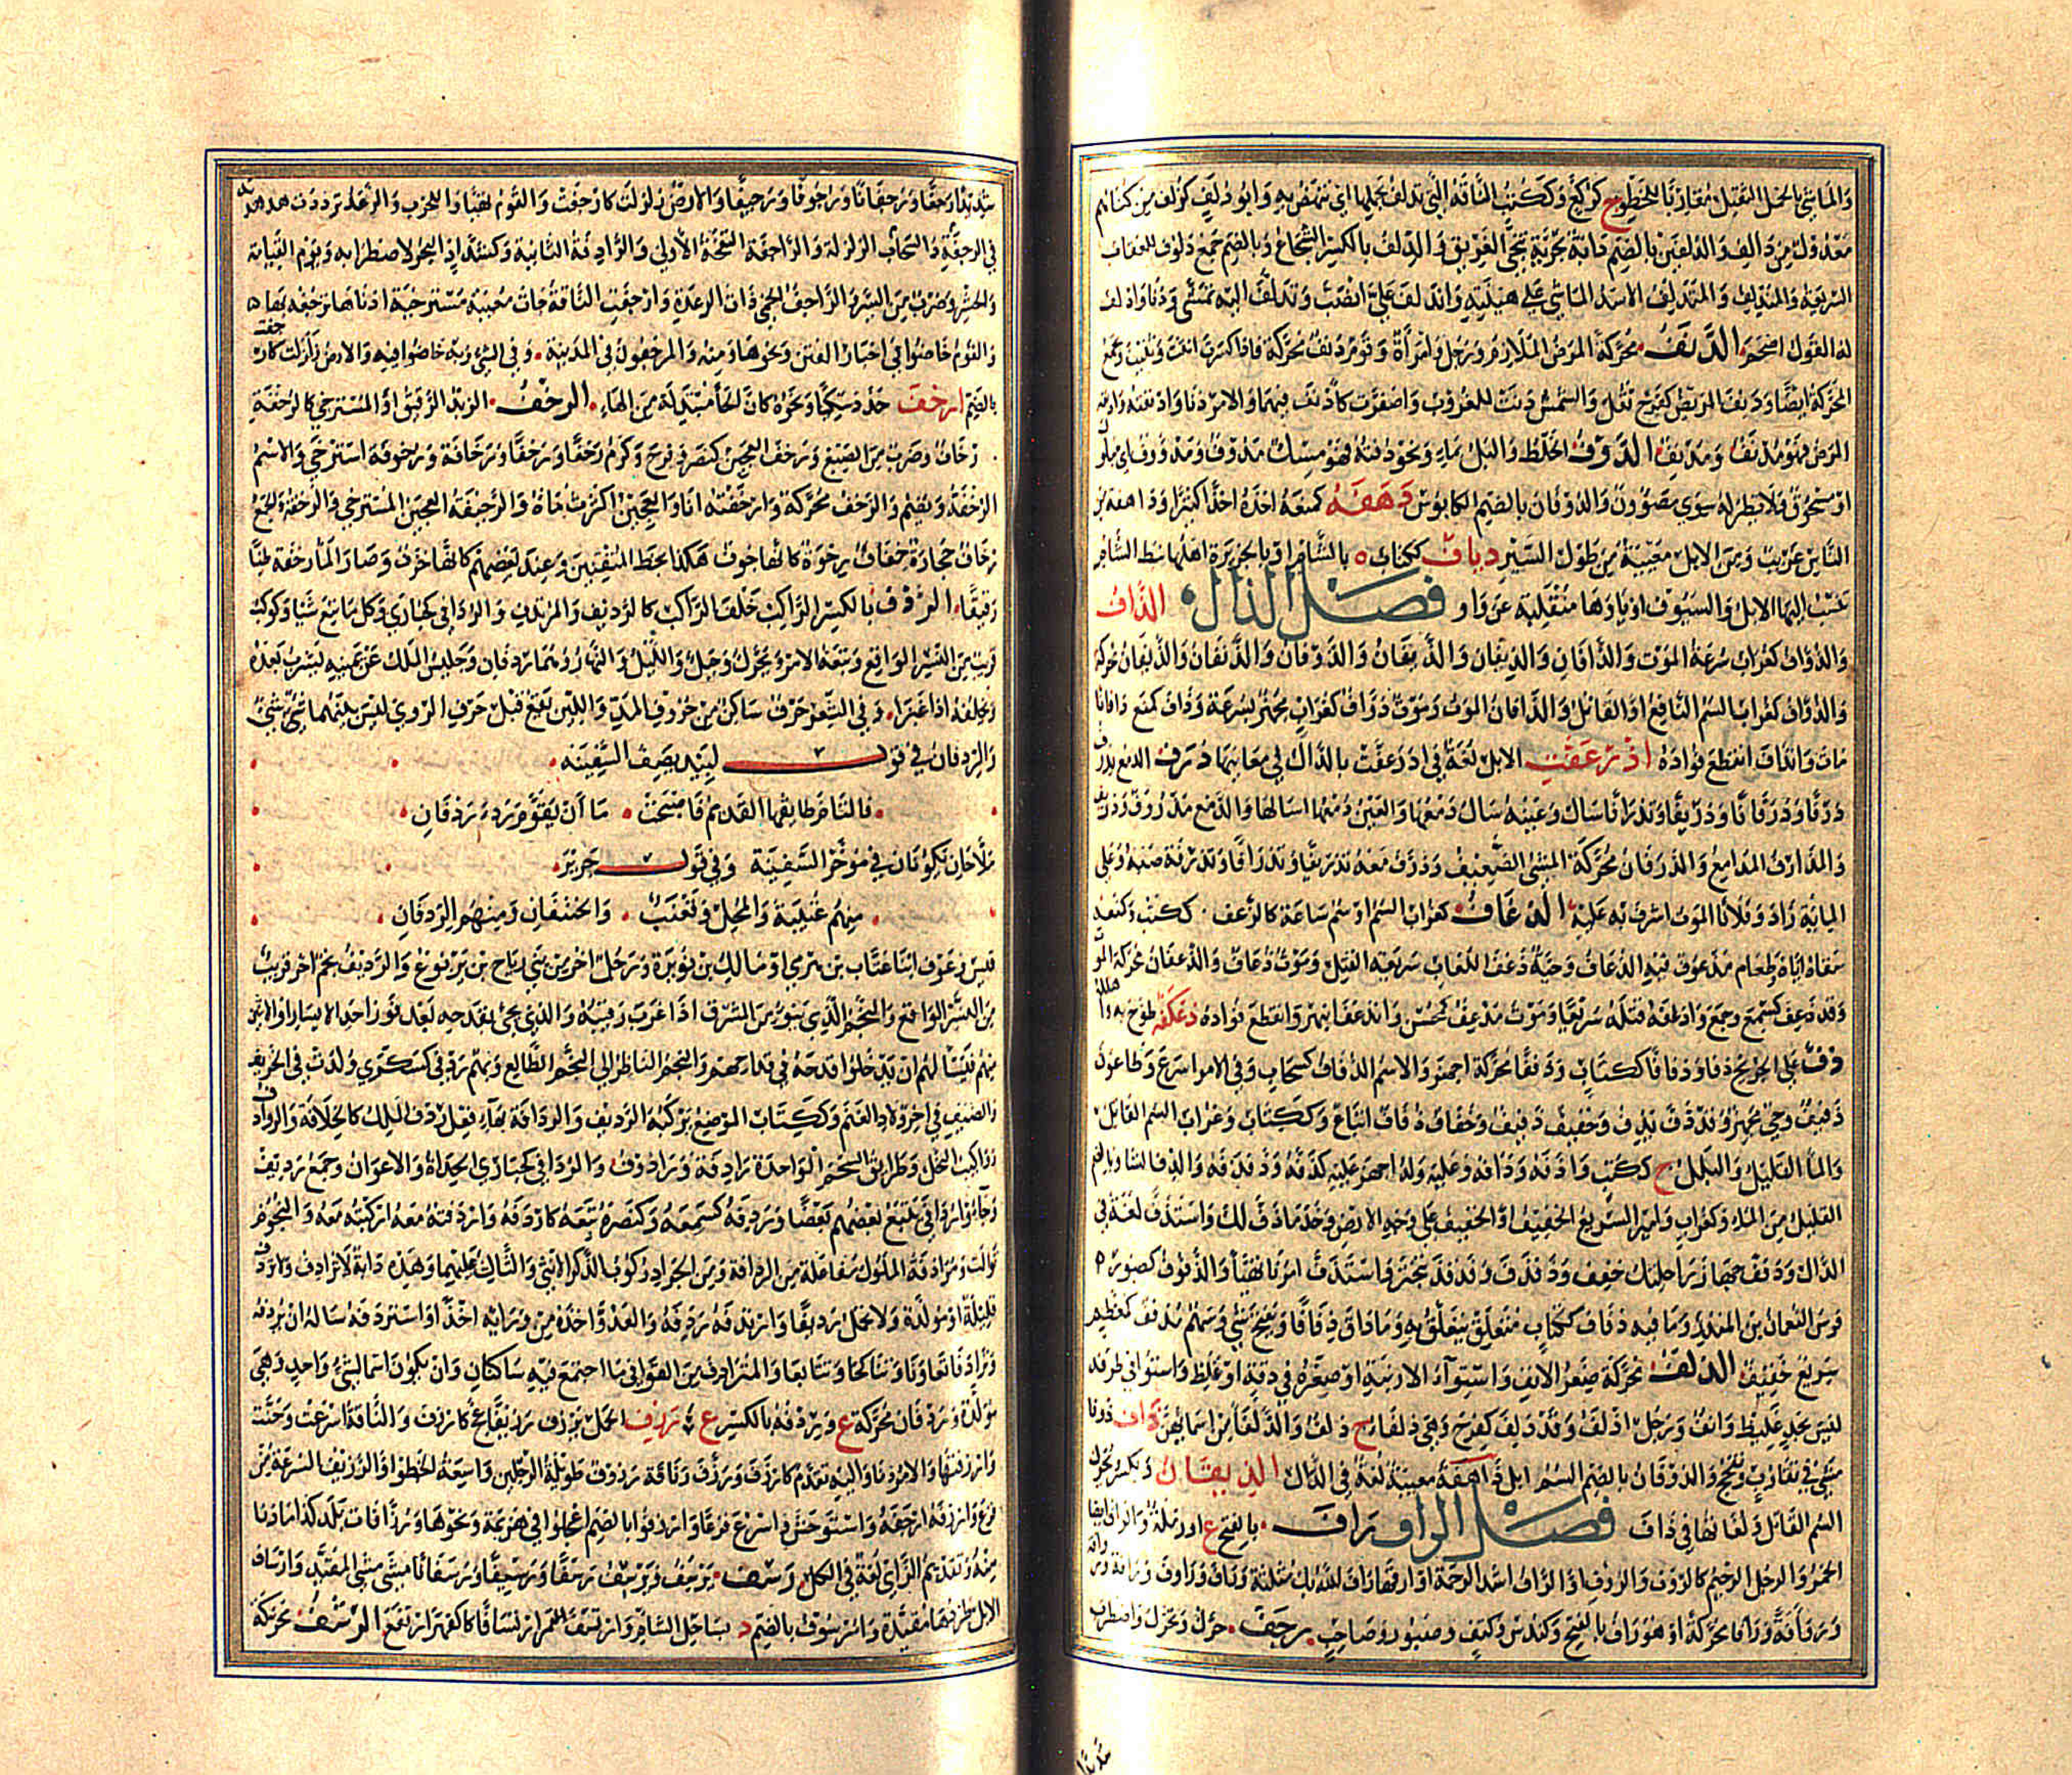 وَالمَاشِي بالحِمل الثقيل مُقارِنًا للخَطْوِ ج كرُكّعٍ وَكَكُتُبٍ النَّاقَةُ الَّتِي تدلف بحملها اي تنهض بِهِ وَابُو دُلَفٍ كزُفَر مِن كناهم
مَعْدُولٌ مِن دَالِفٍ وَالدُلْفينُ بالضم دَابَّةٌ بَحْرِيَّة تُنَجّي الغَرِيقَ وَالدِلفُ بالكسر الشجاعُ وَبالضم جَمعُ دَلُوف للعقاب
السريعة وَالمُنْدَلِفُ وَالمُتَدَلِّفُ الاسَدُ المَاشِي على هِينَتِهِ وَاندَلَفَ عَلَيَّ انصَبَّ وَتَدَلَّفَ اليه تَمَشَّى وَدَنَا وَادلف
له القول اضخم الدَّنَفُ مُحَرَّكَة المَرَضُ المُلازِمُ وَرَجُلٌ وَامْرَأةٌ وَقَوْمٌ دَنَفٌ مُحَرَّكَةً فَاذا كسَرْتَ انثتَ وَثنّيتَ وَجَمَعْ
المحَرَّكَة ايضًا وَدَنِفَ المَرِيضُ كفَرِحَ ثَقُلَ وَالشَّمْسُ دَنَتْ لِلغُروب وَاصْفَرَّت كاَدْنَفَ فيهمَا وَالامْرُ دَنَا وَادْنَفْتُهُ وَادنفه
المَرَضُ فهُوَ مُدْنَفٌ وَمُدْنِفٌ الدَّوْفُ الخَلْطُ وَالبَلُّ بِمَاءٍ وَنحوِهِ دُفتُهُ فهُوَ مِسْكٌ مَدُوفٌ وَمَدْوُوفٌ اي مبلول
اوْ مَسْحُوقٌ وَلا نظيرَ لهُ سِوَى مَصْوُون وَالدُوفانُ بالضم الكابُوسُ دَهَفَهُ كمنَعَهُ اخَذَهُ اخْذًا كثِيرًا وَدَاهِفَة مِن
النَّاس غريب وَمِنَ الابل مُعْيِيَة مِن طُولِ السَّيْرِ دِيَافٌ ككتاب ة بالشَّام اوْ بالجزيرَة اهلُهَا نبط الشام
تُنْسَبُ اليهَا الابلُ وَالسُيُوفُ اوْ يَاؤُهَا مُنْقَلِبَة عن وَاو فصْل الذال الذأفُ
وَالذُؤَاف كغُرابٍ سُرْعَةُ المَوْتِ وَالذأفانُ وَالذِيفانُ وَالذَّيْفانُ وَالذُوفانُ وَالذَّنفانُ وَالذَيَفانُ محركة
وَالذُؤَافُ كغُرابٍ السُم النَّاقِعُ اوِ القَاتِلُ وَالذأفانُ المَوْتُ وَمَوْتٌ ذُؤافٌ كغُرابٍ مُجهِزٌ بسُرعَة وَذَأفَ كمنع ذأفانا
مَاتَ وَانذأفَ انقطَعَ فؤادُهُ اذرَعَفَّتِ الابل لُغَةٌ في ادرَعَفَّتْ بالدَّال في مَعَانِيهَا ذَرَفَ الدمع يذرف
ذَرْفًا وَذَرَفانًا وَذَرِيفًا وَتذْرافًا سَالَ وَعَيْنُهُ سَالَ دَمْعُهَا وَالعَيْنُ دَمْعَهَا اسَالهَا وَالدمع مَذْرُوف وَذريف
وَالمَذارفُ المَدامِعُ وَالذَرَفانُ مُحَرَّكَة المَشْيُ الضَّعِيف وَذَرَّفَ دَمْعَهُ تَذْرِيفًا وَتَذْرَافًا وَتَذْرِفَة صَبَّهُ وَعَلى
المِايَةِ زَادَ وَفُلانًا المَوْتَ اشرَفَ بِه عَلَيْهِ الذُعَافُ كغراب السُم اوْ سُمّ سَاعَة كالذَّعف ج ككتب وكمنعه
سَقاهُ ايّاهُ وَطعَام مَذْعُوف فيه الذُعاف وَحَيَّةٌ ذَعْفُ اللُعَاب سَرِيعَة القَتْل وَمَوْتٌ ذُعَاف وَالذَّعَفانُ محركة الموت
وَقد ذَعِفَ كسَمِعَ وَجمعَ وَاذعَفهُ قتَلَهُ سَرِيعًا وَمَوْتٌ مُذْعِفٌ كمُحسِن وَانذَعَفَ انبهَر وَانقطَعَ فُؤادُهُ ذَعْكَفَهُ طوّح به واهلكه
ذَفَّ عَلَى الجرِيح ذَفًا وَذِفافًا ككِتابٍ وَذَفَفًا مُحَرَّكَة اجهَزَ وَالاسْمُ الذفافُ كسَحابٍ وَفي الامر اسرَعَ وَطاعُونٌ
ذَفِيفٌ وَحيٌّ مُجهِزٌ وَقد ذَفَّ يَذِفُّ وَخَفيفٌ ذَفيفٌ وَخُفافٌ ذُفافٌ اتْباعٌ وَككِتابٍ وَغُرابٍ السُم القاتل
وَالماء القَليلُ وَالبَللُ ج ككُتُب وَاذَفَّهُ وَذَافَّهُ وَعَليهِ وَلهُ اجهز عَليهِ كذَفّفَهُ وَذَفْذَفَهُ وَالذِف الشاء وبالضم
القليل مِنَ الماءِ وَكغُراب وَامِيرٍ السَّرِيعُ الخفِيفُ اوِ الخَفِيف على وَجْهِ الارْضِ وَخُذْ مَا ذَفَّ لكَ وَاسْتَذَفَّ لُغَة في
الدَّال وَذَفِّفْ جَهَازَ رَاحِلتِكَ خَفِّف وَذَفذَفَ وَفَذفَذَ تَبَخْتَرَ وَاسْتَذَفَّ امْرُنَا تَهَيَّأ وَالذَفُوفُ كصَبُور
فَرَسُ النُعمَان بن المنذِر وَمَا فيه ذفاف ككتاب مُتَعَلَّقٌ يُتَعَلَّقُ بِهِ وَمَا ذَاقَ ذِفافًا وَيُفتح شَيْئًا وَسَهْمٌ مُذفّف كمعظم
سَرِيعٌ خَفِيف الذَّلَفُ مُحَرَّكَة صِغَرُ الانف وَاسْتِواءُ الارنبَةِ اوْ صِغَرُهُ في دِقَّةٍ اوْ غِلَظٌ وَاستواء في طرفه
لَيْسَ بِحَدٍّ غَلِيظ وَانفٌ وَرَجُلٌ اذْلَفُ وَقَدْ ذَلِفَ كفَرِحَ وَهِيَ ذَلفَاءُ ج ذُلفٌ وَالذَّلفاءُ مِن اسمَائِهِنَّ ذَافَ ذَوْفا
مَشَى في تقارُبٍ وَتفَحُّجٍ وَالذوفانُ بالضم السُمّ ابل ذاهِفَةٌ مُعْيِيَةٌ لُغَةٌ في الدَّال الذيفانُ وَيكسَرُ ويحرك
السُم القاتل وَلُغَاتُهَا في ذأفَ فصْل الراء رَأفُ بالفتح ع اوْ رَمْلَةٌ وَالرأف ايضا
الخَمْرُ وَالرجُل الرَّحِيم كالرَّؤُفِ وَالرَّؤُوفِ اوِ الرأفة اشَدُّ الرَّحْمَة اوْ ارَقُّهَا رَأفَ الله بِكَ مُثَلَّثَة وَرَافَ وَرَاوَفَ وَرَأفَة وَرَآفة
وَرَأَفًا مُحَرَّكَةً وَهُوَ رَأف بالفتح وَكنَدُسٍ وَكَتِفٍ وَصَبُور وَصَاحِبٍ رَجَفَ حَرَّكَ وَتَحَرَّكَ وَاضطرب
شَدِيدًا رَجْفًا وَرَجَفَانًا وَرُجُوفًا وَرَجِيفًا وَالارْضُ زلزِلَتْ كارْجَفَتْ وَالقَوْمُ تَهَيَّؤُا للحَرْبِ وَالرَّعْدُ تَرَدَّدَت هدهدته
في السحاب وَالرَّجْفَةُ الزلزلَة وَالرَّاجِفَة النَّفْخَةُ الأُولى وَالرَّادِفَةُ الثَّانِيَة وَكشَدَّادٍ البَحْرُ لاضطرابِهِ وَيَوْم القيامَة
وَالحَشْر وَضَرْبٌ مِنَ السَّيْر وَالرَّاجِفُ الحُمّى ذَاتُ الرِعدَةِ وَارْجَفَتِ النَّاقَةُ جَاءَتْ مُعْيِيَةً مُسْتَرْخِيَةً اذناهَا ترجف بهما
وَالقَوْمُ خَاضُوا في اخبَار الفتَنِ وَنحْوِهَا وَمِنهُ وَالمُرْجِفُونَ فِي المَدِينَةِ وَفي الشَّيْءِ وَبِهِ خَاضُوا فِيهِ وَالارضُ زُلزِلَت كارجفت
بالضم ارْحَفَ حَدَّدَ سِكِّينًا وَنَحْوَهُ كأنَّ الحَاءَ مُبْدَلة مِنَ الهَاءِ الرَّخْفُ الزبْدُ الرَّقِيقُ اوِ المُسْتَرْخِي كالرَخْفَة
رخافٌ وَضَرْبٌ مِنَ الصِبْغِ وَرَخفَ العَجِينُ كنَصَرَ وَفَرِحَ وَكَرُمَ رَخْفًا وَرَخَفًا وَرَخَافَةً وَرُخُوفَة اسْتَرْخَى وَالاسْمُ
الرَخْفَةُ وَيُضَمُّ وَالرَّخَفُ مُحَرَّكَة وَارخَفْتُهُ انَا وَالعَجِينَ اكْثَرْتُ مَاءَهُ وَالرَّخِيفَةُ العَجِينُ المُسْتَرْخِي وَالرخفة وَاحِدَة
رِخَافٌ حِجارَةٌ خِفَافٌ رِخْوَةٌ كأنها جوفٌ هكذا بخَط المتقِنِينَ وَعِندَ بَعْضِهم كأنها خَزَف وَصَارَ المَاءُ رَخْفَة طِينًا
رَقِيقًا الرِّدْفُ بالكسر الرَّاكِبُ خَلْفَ الرَّاكِب كالرَّدِيف وَالمُرْتَدِفِ وَالرُدافَى كحُبارَى وَكل مَا تبِعَ شَيْئًا وَكَوْكَبٌ
قَرِيبٌ مِنَ النَّسْرِ الوَاقِع وَتَبِعَةُ الامْرِ وَيُحَرَّكُ وَجَبَلٌ وَاللَّيْلُ وَالنَّهَارُ وَهُمَا رِدْفَانِ وَجَلِيسُ المَلِكِ عَنْ يَمِينِهِ يَشْرَبُ بَعْدَهُ
وَيَخْلُفُهُ اذَا غَزَا وَفي الشِّعْرِ حَرْفٌ سَاكِنٌ مِنْ حُرُوفِ المَدِّ وَاللِّينِ يَقَعُ قَبْلَ حَرْفِ الرَّوِيِّ لَيْسَ بَيْنَهُمَا شَيْءٌ
وَالرِدْفَانُ في قَوْل لَبِيدٍ يَصِفُ السَّفِينَة
فالتَامَ طَايِقُهَا القَدِيمُ فَاصْبَحَتْ مَا أنْ يُقَوِّمَ دَرْءَهَا رِدْفَانِ
مَلاَّحَانِ يَكُونَانِ في مُؤَخَّرِ السَّفِينَة وَفي قَوْل جَرِير
مِنْهُم عُتَيْبَةُ وَالمُحِلُّ وَقَعْنَبٌ وَالحَنْتَفَانِ وَمِنْهُم الرِّدْفَانِ
قَيسٌ وَعَوْف ابْنَا عَتَّاب بن هَرَمِيٍّ اوْ مَالِكُ بن نُوَيْرَة وَرَجُلٌ آخَرُ مِنْ بَنِي رِيَاح بن يَرْبُوع وَالرَّدِيفُ نَجْم آخَرُ قريبٌ
مِنَ النَّسْرِ الوَاقِع وَالنَّجْمُ الَّذِي يَنُوءُ مِنَ المَشرق اذَا غَرَبَ رَقِيبُهُ وَالذِي يَجِيءُ بقِدْحِهِ بَعْدَ فَوْز احَد الايْسَار اوِ الاثنين
مِنهُم فيَسْأَلُهُم انْ يُدْخِلُوا قِدْحَهُ في قِدَاحِهِم وَالنَّجمُ النَاظِرُ الى النَّجْم الطَّالِع وَبَهْمٌ رَدْفَى كسَكْرَى وُلِدَتْ في الخَرِيفِ
وَالصَّيْفِ في آخِرِ وِلادِ الغَنَم وَككِتَابٍ المَوْضِعُ يَرْكَبُهُ الرَّدِيف وَالرِدَافَة بهاءٍ فِعْلُ رِدْف المَلِكِ كالخلافة وَالرَّوادف
رَوَاكِيبُ النَّخْلِ وَطَرَائِقُ الشَّحْمِ الوَاحِدَة رَادِفَة وَرَادُوفٌ وَالرُدَافَى كحُبَارَى الحُدَاةُ وَالاعوَانُ وَجَمعُ رَدِيف
وَجَاءُوا رُدَافَى يَتْبَعُ بَعْضُهُم بَعْضًا وَرَدِفَهُ كسَمِعَهُ وَكنَصَرَهُ تَبِعَهُ كارْدَفَهُ وَارْدَفْتُهُ مَعَهُ ارْكَبْتُهُ مَعَهُ وَالنُّجُوْمُ
تَوَالَتْ وَمُرَادَفَةُ المُلُوك مُفَاعَلَة مِن الرِدَافَة وَمِنَ الجرَادِ رُكُوبُ الذَّكَرِ الأُنثَى وَالثَّالِثِ عَلَيْهِمَا وَهذِهِ دَابَّةٌ لا تُرَادِف ولا تردف
قَلِيلَةٌ اوْ مُوَلَّدَة وَلا تَحْمِلُ رَدِيفًا وَارْتَدَفَهُ رَدِفَهُ وَالعَدُوَّ اخَذَهُ مِنْ وَرَائِهِ اخْذًا وَاسْتَرْدَفَهُ سَالَهُ انْ يُرْدِفَهُ
وَتَرَادَفَا تَعَاوَنَا وَتَنَاكَحَا وَتَتَابَعَا وَالمُتَرَادِفُ مِنَ القَوَافي مَا اجتَمَعَ فِيهِ سَاكِنَانِ وَانْ يَكُونَ اسمَاءٌ لِشَيْءٍ وَاحِدٍ وَهِيَ
مُوَلَّدَة وَرَدَفَانُ مُحَرَّكَة ع وَرِدْفَةُ بالكسر ع رَزَفَ الجَمَلُ يَرْزِفُ رَزِيفًا عَجَّ كارْزَفَ وَالنَّاقَةُ اسْرَعَتْ وَخَبَّتْ
وَارْزَفْتُهَا وَالامْرُ دَنَا وَاليهِ تقَدَّم كارْزَفَ وَرَزَّفَ وَنَاقَة رَزُوفٌ طوِيلَةُ الرِجْلَينِ وَاسِعَةُ الخَطْوِ وَالرَّزِيفُ السُرْعَة مِنْ
فَزَعٍ وَارزَفَهُ ارْجَفَهُ وَاسْتَوْحَشَ وَاسْرَعَ فَزَعًا وَارْزِفُوا بالضَم اُعْجِلُوا في هَزِيمَة وَنَحْوِهَا وَرُزَّافَاتُ بَلَد كذا مَا دَنَا
مِنهُ وَتقدِيمُ الزَّاي لُغَة في الكل رَسَفَ يَرْسُفُ وَيَرْسِفُ رَسْفًا وَرَسِيفًا وَرَسَفَانًا مَشَى مَشْيَ المُقَيَّدِ وَارْسَافُ
الابل طَرْدُهَا مُقَيَّدَة وَارْسُوفُ بالضم د بسَاحِل الشَّام وَارْتَسَفَّ ارْتِسَافًا كاكفَهَرَّ ارْتَفَعَ الرَّشَفُ مُحَرَّكَة